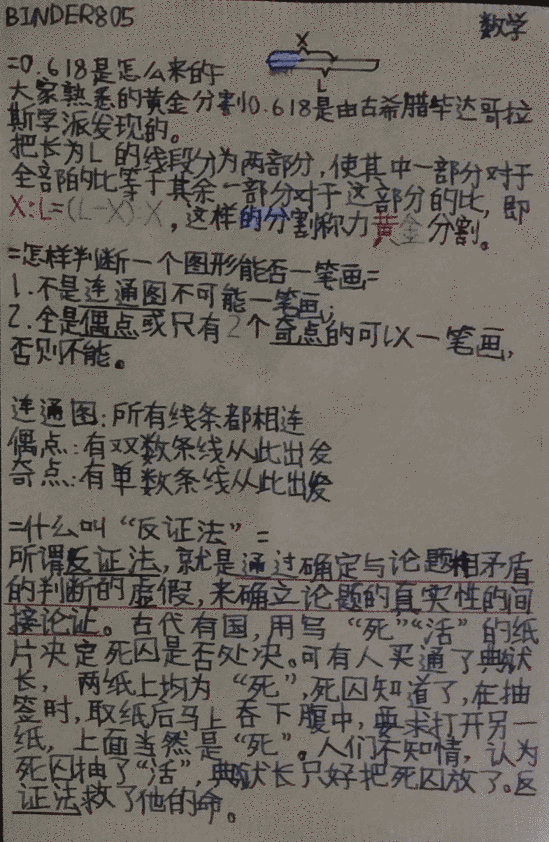 BINDER805
数学
X
L
=0.618是怎么来的=
大家熟悉的黄金分割0.618是由古希腊毕达哥拉
斯学派发现的。
把长为L的线段分为两部分,使其中一部分对于
全部的比等于其余一部分对于这部分的比,即
X:L=(L-X):X,这样的分割称为黄金分割。
=怎样判断一个图形能否一笔画=
1.不是连通图不可能一笔画;
2.全是偶点或只有2个奇点的可以一笔画,
否则不能。
连通图:所有线条都相连
偶点:有双数条线从此出发
奇点:有单数条线从此出发
=什么叫“反证法”=
所谓反证法,就是通过确定与论题相矛盾
的判断的虚假,来确立论题的真实性的间
接论证。古代有国,用写“死”“活”的纸
片决定死囚是否处决。可有人买通了典狱
长,两纸上均为“死”,死囚知道了,在抽
签时,取纸后马上吞下腹中,要求打开另一
纸,上面当然是“死”。人们不知情,认为
死囚抽了“活”,典狱长只好把死囚放了。反
证法救了他的命。